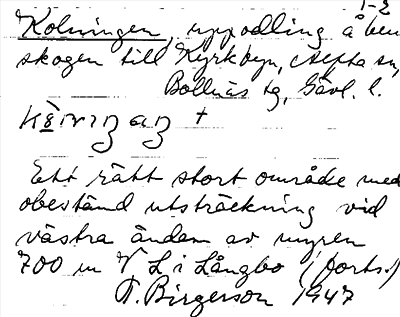 1-2
Kolningen, uppodling å ben
skogen till Kyrkbyn, Alfta sn,
Bollnäs tg, Gävl. l.
Ett rätt stort område med
obestämd utsträckning vid
västra änden av myren
700 m V L i Långbo (forts.)
T. Birgerson 1947